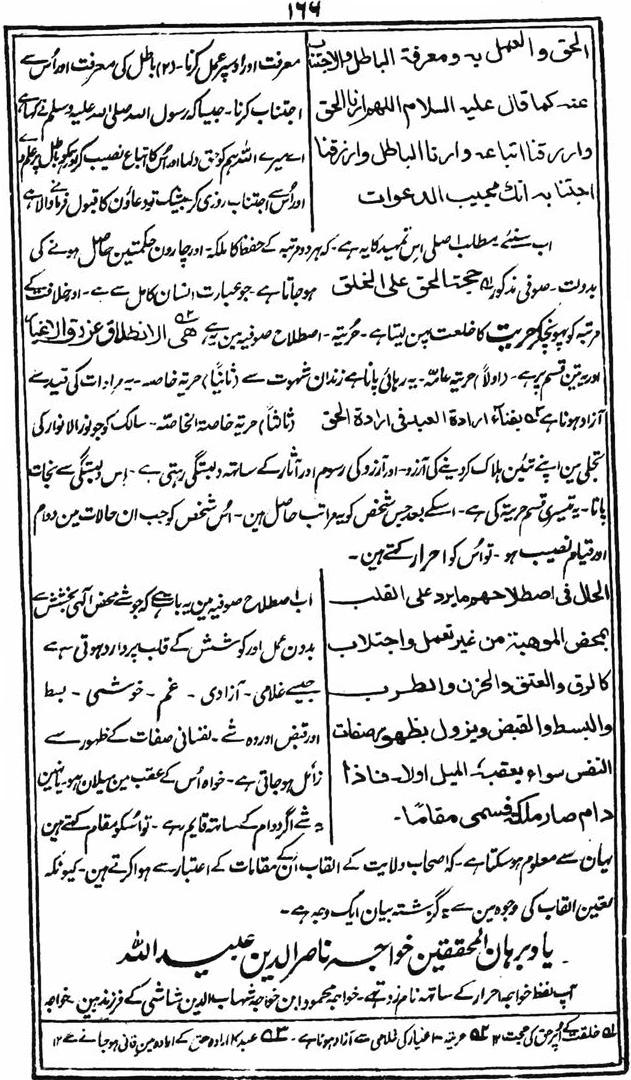 ۱۶۶
الحق والعمل به ومعرفة الباطل والاجتناب
عنه كما قال عليه السلام اللهم ارنا الحق
وارزقنا اتباعه وارنا الباطل وارزقنا
اجتنابه انك مجيب الدعوات
معرفت اور اوسپر عمل کرنا۔ (۲) باطل کی معرفت اور اُس سے
اجتناب کرنا۔ جیسا کہ رسول اللہ صلی اللہ علیہ وسلم نے کہا ہے
اے میرے اللہ ہم کو حق دکھا اور اُس کا اتباع نصیب کر اور ہمکو باطل پر علم دے
اور اُس سے اجتناب روزی کر بیشک تو دعاؤں کا قبول فرمانے والا ہے
اب سنئے مطلب اصلی اس تمہید کا یہ ہے۔ کہ ہر دو مرتبہ کے حفظ کا ملکہ اور چارون حکمتین حاصل ہونے کی
بدولت۔ صوفی مذکور ۵۱ حجة الحق على الخلق ہو جاتا ہے۔ جو عبارت انسان کامل سے ہے۔ اور خلافت کے
مرتبہ کو پہونچکر حریت کا خلعت پہن لیتا ہے۔ حریّۃ۔ اصطلاح صوفیہ مین یہ ہے ۵۲ هي الانطلاق عن رق الاغيار
اور یہ تین قسم پر ہے۔ (اولاً) حریۃ عامّہ۔ یہ رہائی پانا ہے زندان شہوت سے (ثانیًا) حریۃ خاصہ۔ یہ مرادات کی قید سے
آزاد ہونا ہے ۵۳ بفناء ارادة العبد في ارادة الحق (ثالثًا) حریۃ خاصۃ الخاصہ۔ سالک کو جو نور الانوار کی
تجلی مین اپنے تئین ہلاک کر دینے کی آرزو۔ اور آرزو کی رسوم اور آثار کے ساتھ دلبستگی رہتی ہے۔ اس دلبستگی سے نجات
پانا۔ یہ تیسری قسم حریۃ کی ہے۔ اسکے بعد جس شخص کو یہ مراتب حاصل ہین۔ اُس شخص کو جب ان حالات مین دوام
اور قیام نصیب ہو۔ تو اُس کو احرار کہتے ہین۔
الحال في اصطلاحهم ما يرد على القلب
بمحض الموهبة من غير تعمل واجتلاب
كالرق والعتق والحزن والطرب
والبسط والقبض ويزول بظهور صفات
النفس سواء يعقبه الميل اولا۔ فاذا
دام صار ملكة فسمى مقاما۔
اب اصطلاح صوفیہ مین یہ بات ہے کہ جو شے محض الٰہی بخشش سے
بدون عمل اور کوشش کے قلب پر وارد ہوتی ہے
جیسے غلامی۔ آزادی۔ غم۔ خوشی۔ بسط
اور قبض اور وہ شے۔ نفسانی صفات کے ظہور سے
زائل ہو جاتی ہے۔ خواہ اُس کے عقب مین میلان ہو۔ یا نہین
یہ شے اگر دوام کے ساتھ قایم رہے۔ تو اسکو مقام کہتے ہین
بیان سے معلوم ہو سکتا ہے۔ کہ اصحاب ولایت کے القاب اُن کے مقامات کے اعتبار سے ہوا کرتے ہین۔ کیونکہ
تعین القاب کی وجوہ مین سے یہ گزشتہ بیان ایک وجہ ہے۔
یاد برہان المحققین خواجہ ناصر الدین عبید اللہ
آپ بلفظ خواجہ احرار کے ساتھ نامزد تھے۔ خواجہ محمود ابن خواجہ شہاب الدین شاشی کے فرزند ہین۔ خواجہ
۵۱ خلقت کے اوپر حق کی حجت ۱۲ ۵۲ حریۃ۔ اغیار کی غلامی سے آزاد ہونا ہے۔ ۵۳ عبد کا ارادہ حق کے ارادہ مین فانی ہو جانے سے ۱۲